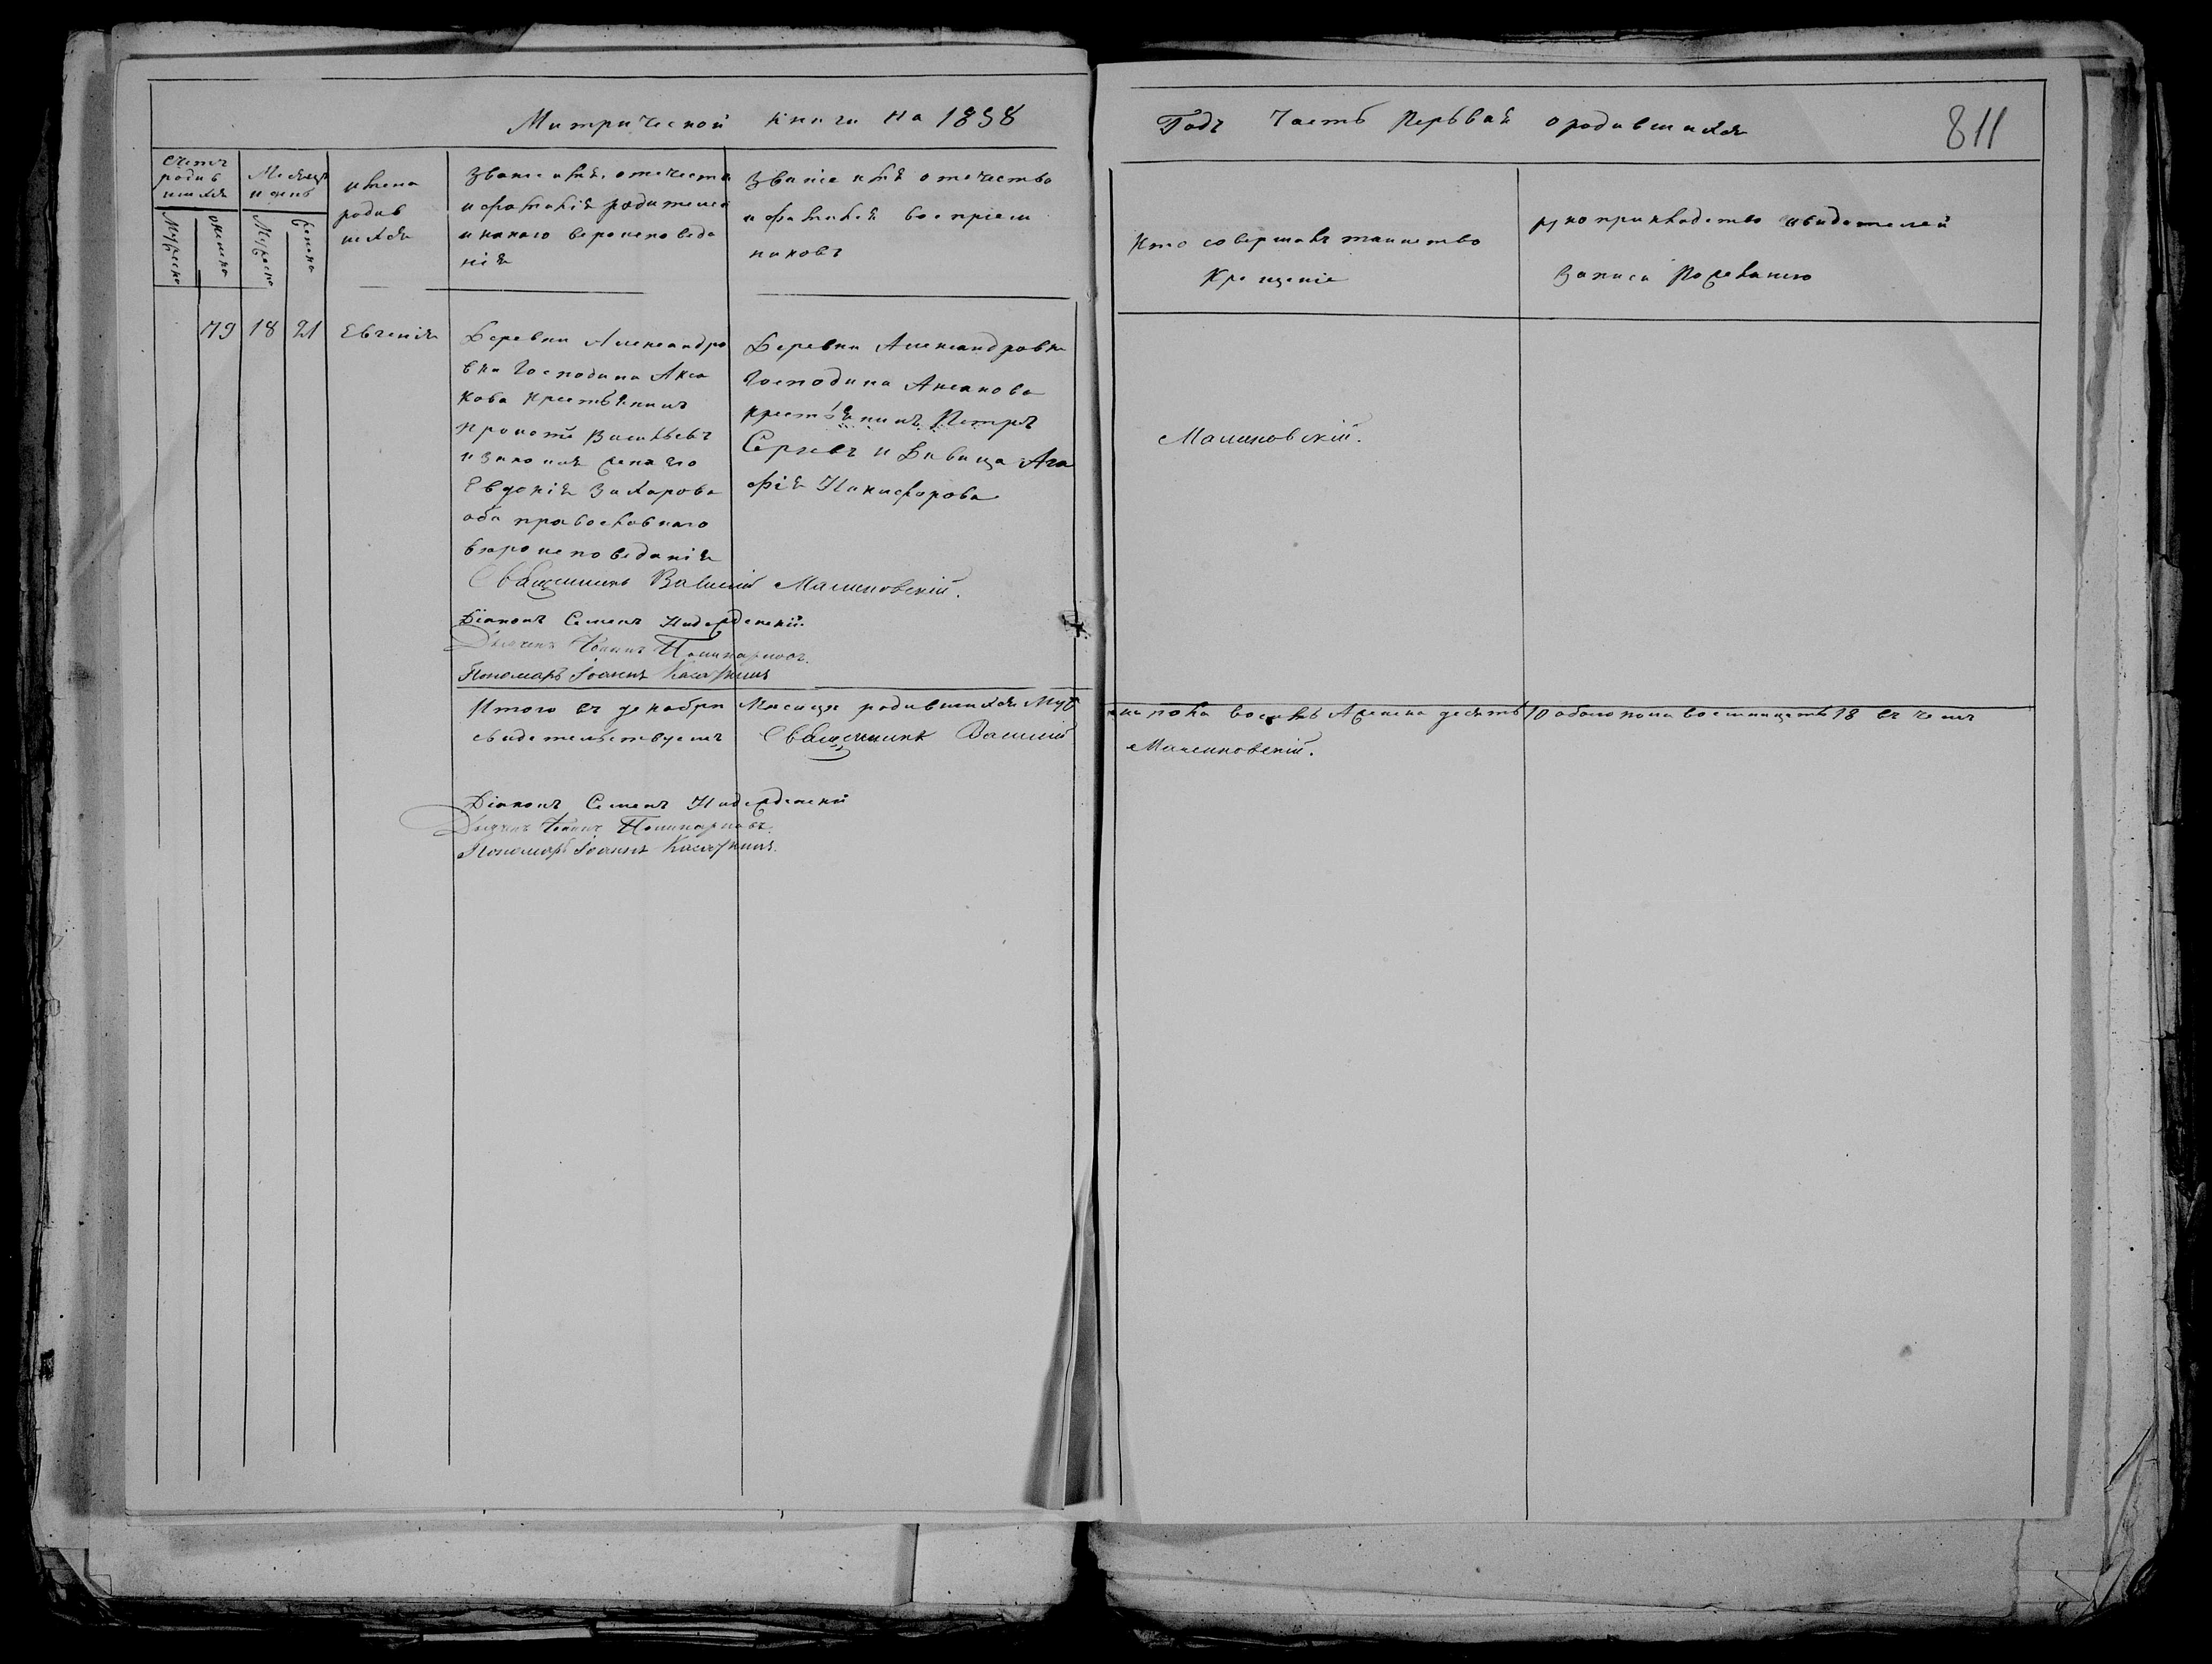 Митрической книги на 1858
Годъ Часть Перьвая о родившихся
811
Счетъ
родив
шихся
Мужеска
женска
Месяцъ
и день
имена
родив
шихся
Звание имя, отечество
и фамилия родителей
и какого веро исповеда
ния
Звание имя отечество
и фамилия восприем
никовъ
Кто совершалъ таинство
Крещение
рукоприкладство свидетелей
записи по желанию
79 18 21 Евгения
Деревни Александро
вки Господина Акса
кова крестьянинъ
Васильевъ
и законная жена его
Евдокия Захарова
оба православнаго
вероисповедания
Деревни Александровки
Господина Аксакова
крестьянинъ Петръ
Сергеевъ и Девица Ага
фия Никифорова
Малиновскій.
Священникъ Василій Малиновскій.
Діаконъ Семенъ
Дьячекъ Иоаннъ Поликарповъ.
Пономарь Іоаннъ Касаткинъ
Итого въ декабре месяце родившихся муж
ска пола восемь женска десять 10 обоего пола восемнацеть 18 въ чемъ
свидетельствуемъ Священникъ Василій
Малиновскій.
Діаконъ Семенъ
Дьячекъ Иоаннъ Поликарповъ.
Пономарь Іоаннъ Касаткинъ.